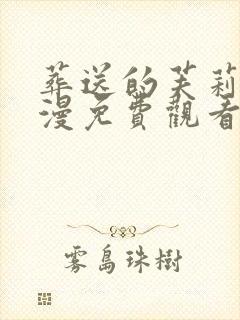 葬送的芙莉
漫免費觀看
雾島珠樹